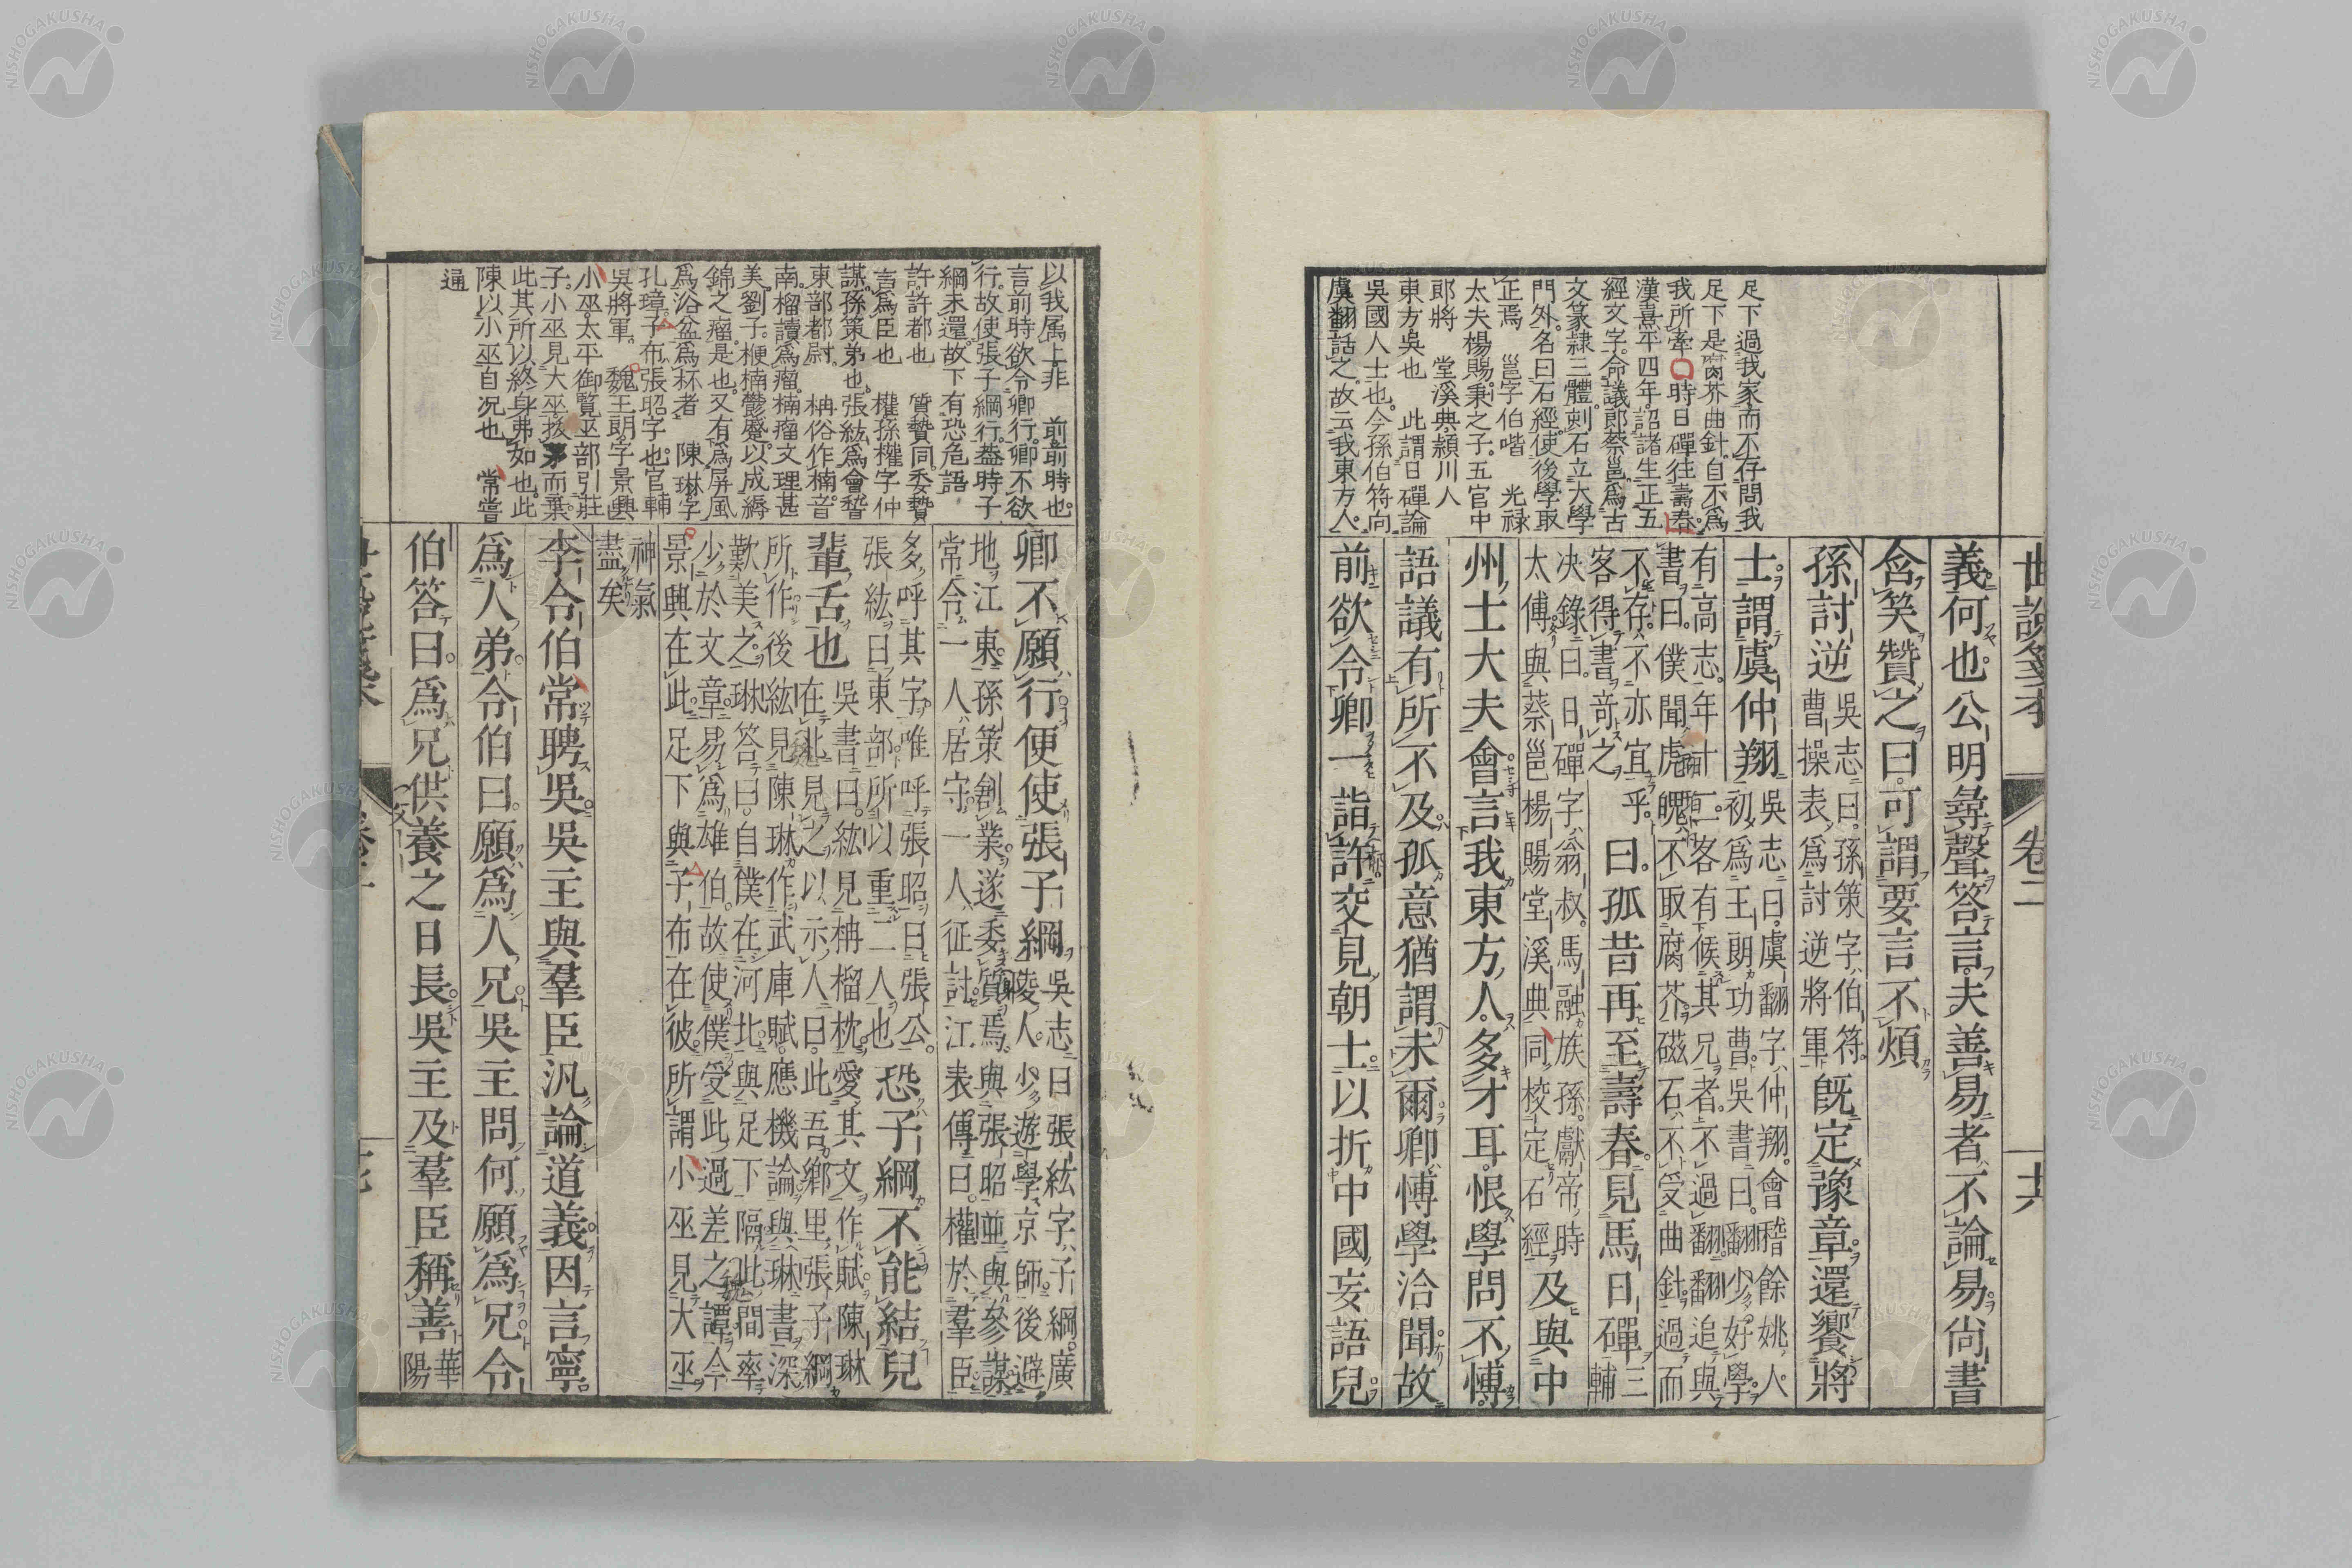 世説箋本
卷二
十六
足下過我家而不存問我
足下是腐芥曲針自不爲
我所牽 時日磾往壽春
漢熹平四年詔諸生正五
經文字命議郎蔡邕爲古
文篆隷三體刻石立大學
門外名曰石經使後學取
正焉 邕字伯喈 光禄
太夫楊賜秉之子五官中
郎將 堂溪典頴川人
東方吳也 此謂日磾論
吳國人士也今孫伯符向
虞翻話之故云我東方人
義何也公明尋聲答言夫善易者不論易尚書
含笑贊之曰可謂要言不煩
孫討逆吳志曰孫策字伯符
曹操表爲討逆將軍既定豫章還饗將
士謂虞仲翔吳志曰虞翻字仲翔會稽餘姚人
初爲王朗功曹吳書曰翻少好學
有高志年十二客有候其兄者不過翻翻追與
書曰僕聞虎魄不取腐芥磁石不受曲針過而
不存不亦宜乎
客得書奇之曰孤昔再至壽春見馬日磾三輔
决錄曰日磾字翁叔馬融族孫獻帝時
太傅與蔡邕楊賜堂溪典同校定石經及與中
州士大夫會言我東方人多才耳恨學問不博
語議有所不及孤意猶謂未爾卿博學洽聞故
前欲令卿一詣許交見朝士以折中國妄語兒
以我属上非 前前時也
言前時欲令卿行卿不欲
行故使張子綱行葢時子
綱未還故下有恐危語
許許都也 質贄同委贄
言爲臣也 權孫權字仲
謀孫策弟也張紘爲會稽
東部都尉 枏俗作楠音
南榴讀爲瘤楠瘤文理甚
美劉子梗楠鬱蹙以成縟
錦之瘤是也又有爲屏風
爲浴盆爲杯者 陳琳字
孔璋子布張昭字也官輔
吳將軍 魏王朗字景興
小巫太平御覧巫部引莊
子小巫見大巫拔茅而棄
此其所以終身弗如也此
陳以小巫自况也 常嘗
通
卿不願行便使張子綱吳志曰張紘字子綱廣
陵人少遊學京師後避
地江東孫策創業遂委質焉與張昭並與參謀
常令一人居守一人征討江表傳曰權於羣臣
多呼其字唯呼張昭曰張公
張紘曰東部所以重二人也恐子綱不能結兒
輩舌也吳書曰紘見枏榴枕愛其文作賦陳琳
在北見之以示人曰此吾鄉里張子綱
所作後紘見陳琳作武庫賦應機論與琳書深
歎美之琳答曰自僕在河北與足下隔此間率
少於文章易爲雄伯故使僕受此過差之譚今
景興在此足下與子布在彼所謂小巫見大巫
神氣
盡矣
李令伯常聘吳吳主與羣臣汎論道義因言寧
爲人弟令伯曰願爲人兄吳主問何願爲兄令
伯答曰爲兄供養之日長吳主及羣臣稱善華
陽